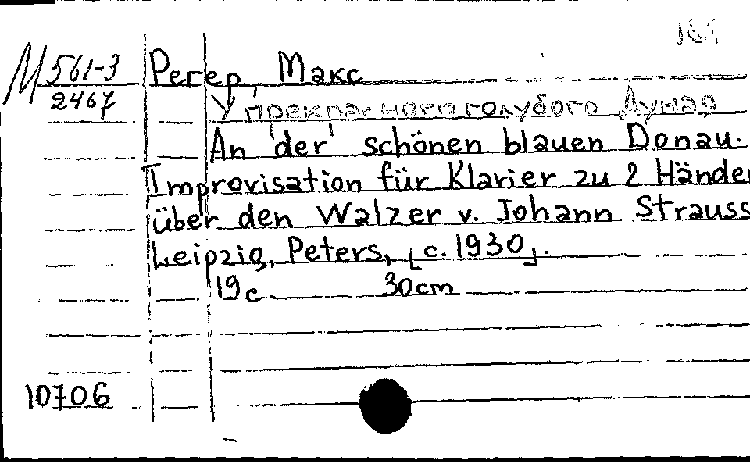 М 561-3 Регер, Макс
2467 У прекрасного голубого Дуная
An der schönen blauen Donau.
Improvisation für Klavier zu 2 Hände
über den Walzer v. Johann Strauss
Leipzig, Peters, [c. 1930].
19c. 30cm
10706